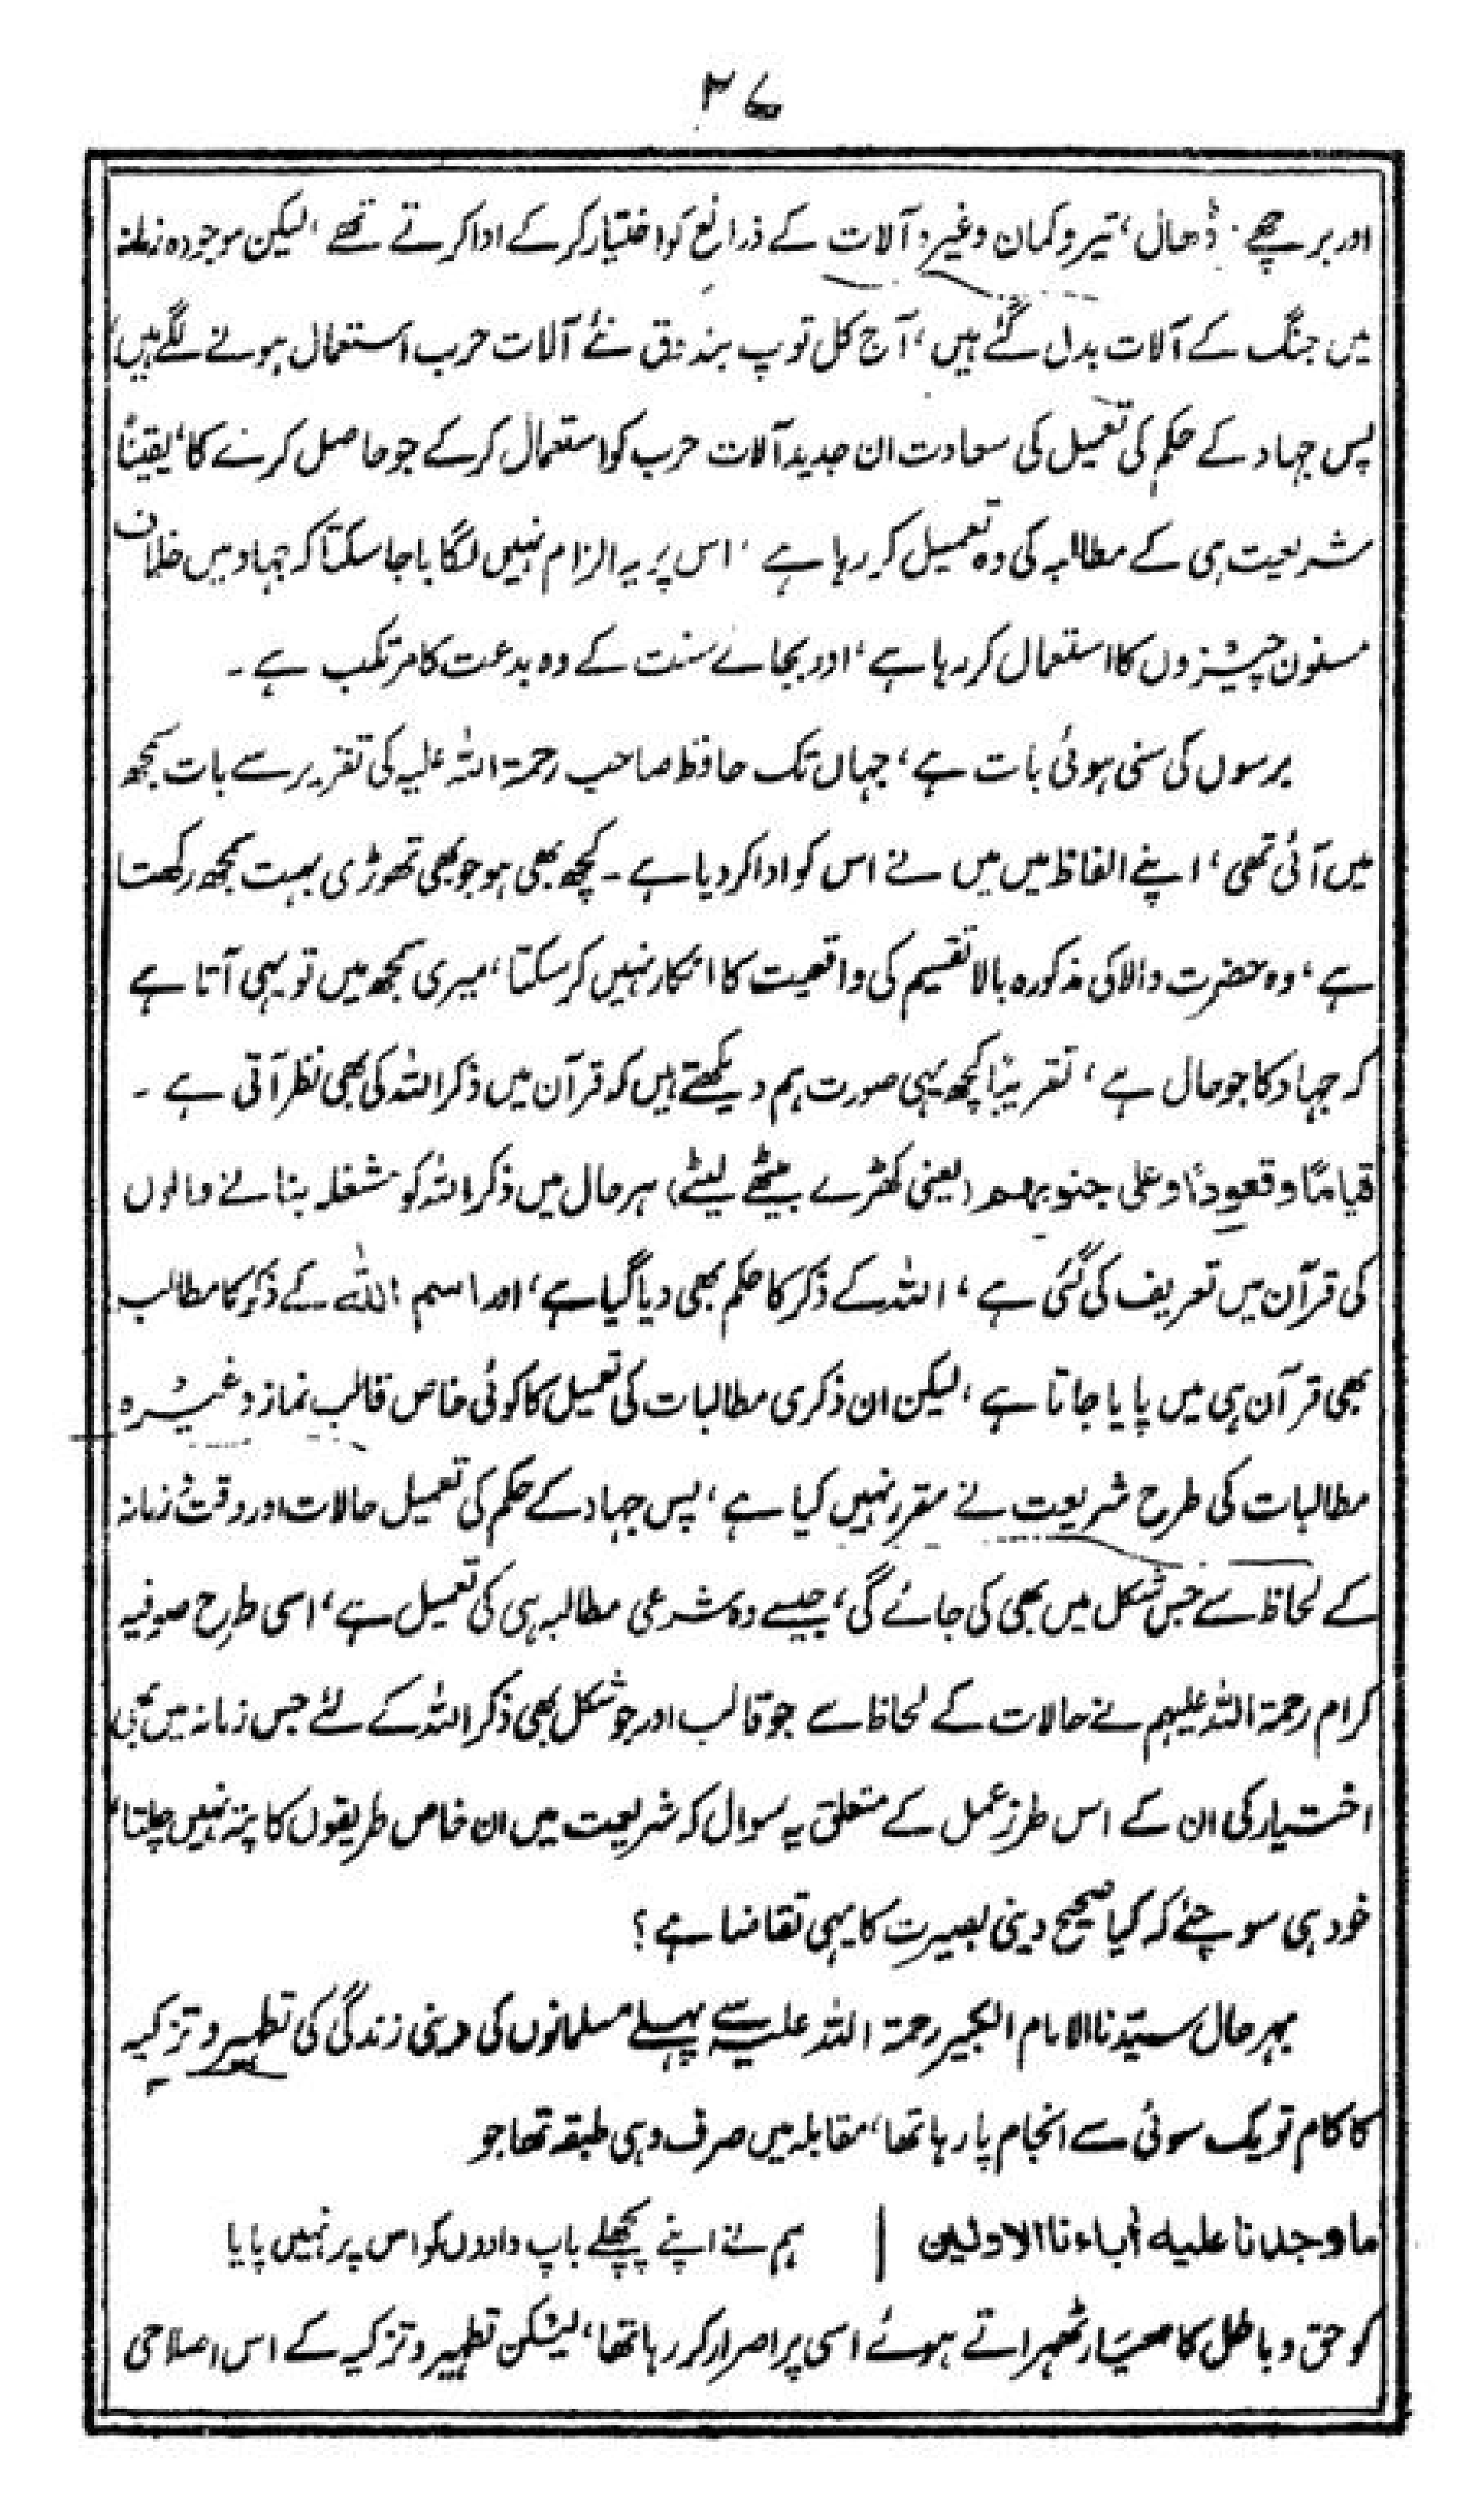 ۳۷
اور برچھے، ڈھال، تیر و کمان وغیرہ آلات کے ذرائع کو اختیار کر کے ادا کرتے تھے، لیکن موجودہ زمانہ
میں جنگ کے آلات بدل گئے ہیں، آج کل توپ بندوق نئے آلات حرب استعمال ہونے لگے ہیں،
پس جہاد کے حکم کی تعمیل کی سعادت ان جدید آلات حرب کو استعمال کر کے جو حاصل کرنے کا، یقیناً
شریعت ہی کے مطالبہ کی وہ تعمیل کر رہا ہے، اس پر یہ الزام نہیں لگایا جا سکتا کہ جہاد میں خلاف
مسنون چیزوں کا استعمال کر رہا ہے، اور بجائے سنت کے وہ بدعت کا مرتکب ہے۔
برسوں کی سنی ہوئی بات ہے، جہاں تک حافظ صاحب رحمۃ اللہ علیہ کی تقریر سے بات سمجھ
میں آئی تھی، اپنے الفاظ میں میں نے اس کو ادا کر دیا ہے۔ کچھ بھی ہو جو بھی تھوڑی بہت سمجھ رکھتا
ہے، وہ حضرت والا کی مذکورہ بالا تقسیم کی واقعیت کا انکار نہیں کر سکتا، میری سمجھ میں تو یہی آتا ہے
کہ جہاد کا جو حال ہے، تقریباً کچھ یہی صورت ہم دیکھتے ہیں کہ قرآن میں ذکر اللہ کی بھی نظر آتی ہے۔
قیاماً و قعوداً و علی جنوبھم (یعنی کھڑے بیٹھے لیٹے) ہر حال میں ذکر اللہ کو مشغلہ بنانے والوں
کی قرآن میں تعریف کی گئی ہے، اللہ کے ذکر کا حکم بھی دیا گیا ہے، اور اسم اللہ کے ذکر کا مطالبہ
بھی قرآن ہی میں پایا جاتا ہے، لیکن ان ذکری مطالبات کی تعمیل کا کوئی خاص قالب نماز وغیرہ
مطالبات کی طرح شریعت نے مقرر نہیں کیا ہے، پس جہاد کے حکم کی تعمیل حالات اور وقت و زمانہ
کے لحاظ سے جس شکل میں بھی کی جائے گی، جیسے وہ شرعی مطالبہ ہی کی تعمیل ہے، اسی طرح صوفیہ
کرام رحمۃ اللہ علیہم نے حالات کے لحاظ سے جو قالب اور جو شکل بھی ذکر اللہ کے لئے جس زمانہ میں بھی
اختیار کی ان کے اس طرز عمل کے متعلق یہ سوال کہ شریعت میں ان خاص طریقوں کا پتہ نہیں چلتا،
خود ہی سوچئے کہ کیا صحیح دینی بصیرت کا یہی تقاضا ہے؟
بہرحال سیّدنا الامام الکبیر رحمۃ اللہ علیہ سے پہلے مسلمانوں کی دینی زندگی کی تطہیر و تزکیہ
کا کام تو یک سوئی سے انجام پا رہا تھا، مقابلہ میں صرف وہی طبقہ تھا جو
ما وجدنا علیه أباءنا الاولین | ہم نے اپنے پچھلے باپ دادوں کو اس پر نہیں پایا
کو حق و باطل کا معیار ٹھہراتے ہوئے اسی پر اصرار کر رہا تھا، لیکن تطہیر و تزکیہ کے اس اصلاحی